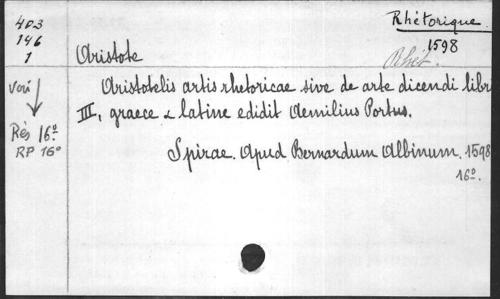 4D3
146
1
Rhétorique.
1598
Rhét.
Aristote
Aristotelis artis rhetoricae sive de arte dicendi libri
III, graece & latine edidit Aemilius Portus.
Voir
Rés 16°
RP 16°
Spirae. Apud Bernardum Albinum. 1598
16°.